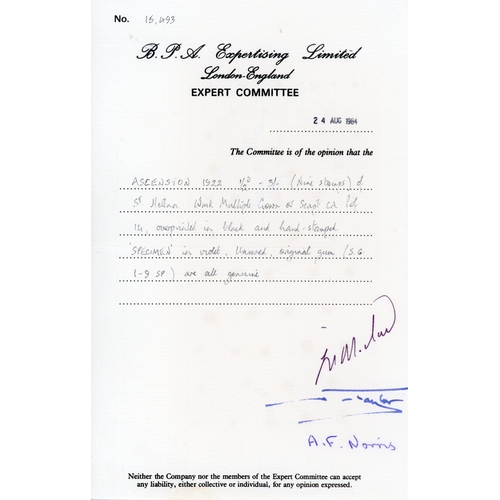 No. 15,493
B.P.A. Expertising Limited
London-England
EXPERT COMMITTEE
24 AUG 1984
The Committee is of the opinion that the
ASCENSION 1922 ½D - 3/- (Nine stamps) of
St Helena Wmk Multiple Crown or Script CA Perf
14, overprinted in black and hand-stamped
'SPECIMEN' in violet, Unused, original gum (S.G.
1-9 SP) are all genuine
A.F. Norris
Neither the Company nor the members of the Expert Committee can accept
any liability, either collective or individual, for any opinion expressed.